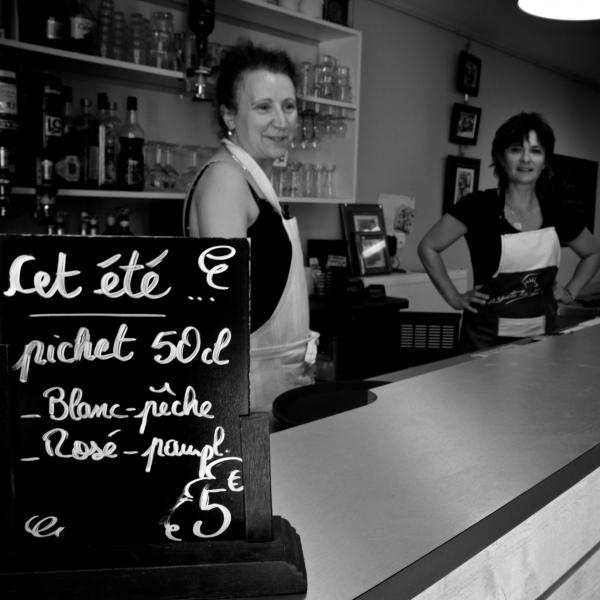 Cet été ...
pichet 50cl
- Blanc-pêche
- Rosé-pampl.
5€